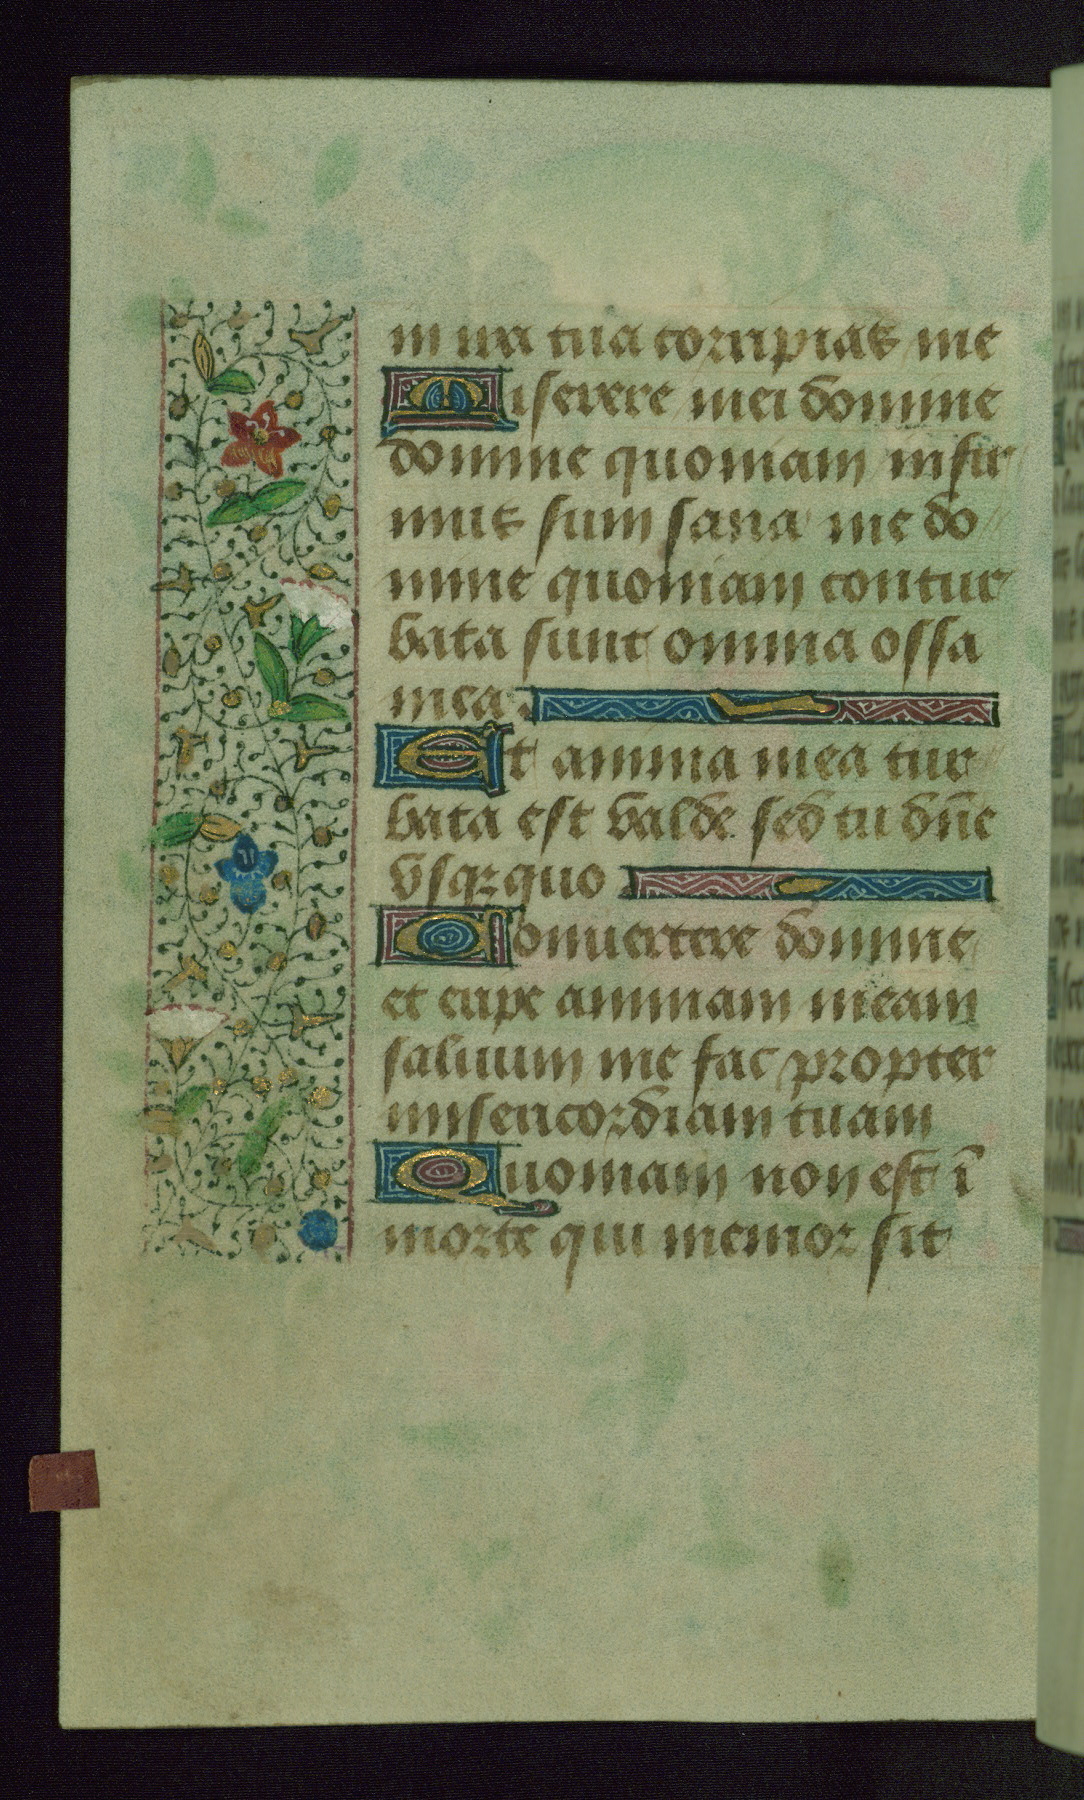 in ira tua corripias me
Miserere mei domine
domine quoniam infir
mus sum sana me do
mine quoniam contur
bata sunt omnia ossa
mea.
Et anima mea tur
bata est valde sed tu dn̄e
vsqꝫquo
Conuertere domine
et eripe animam meam
saluum me fac propter
misericordiam tuam
Quoniam non est ī
morte qui memor sit